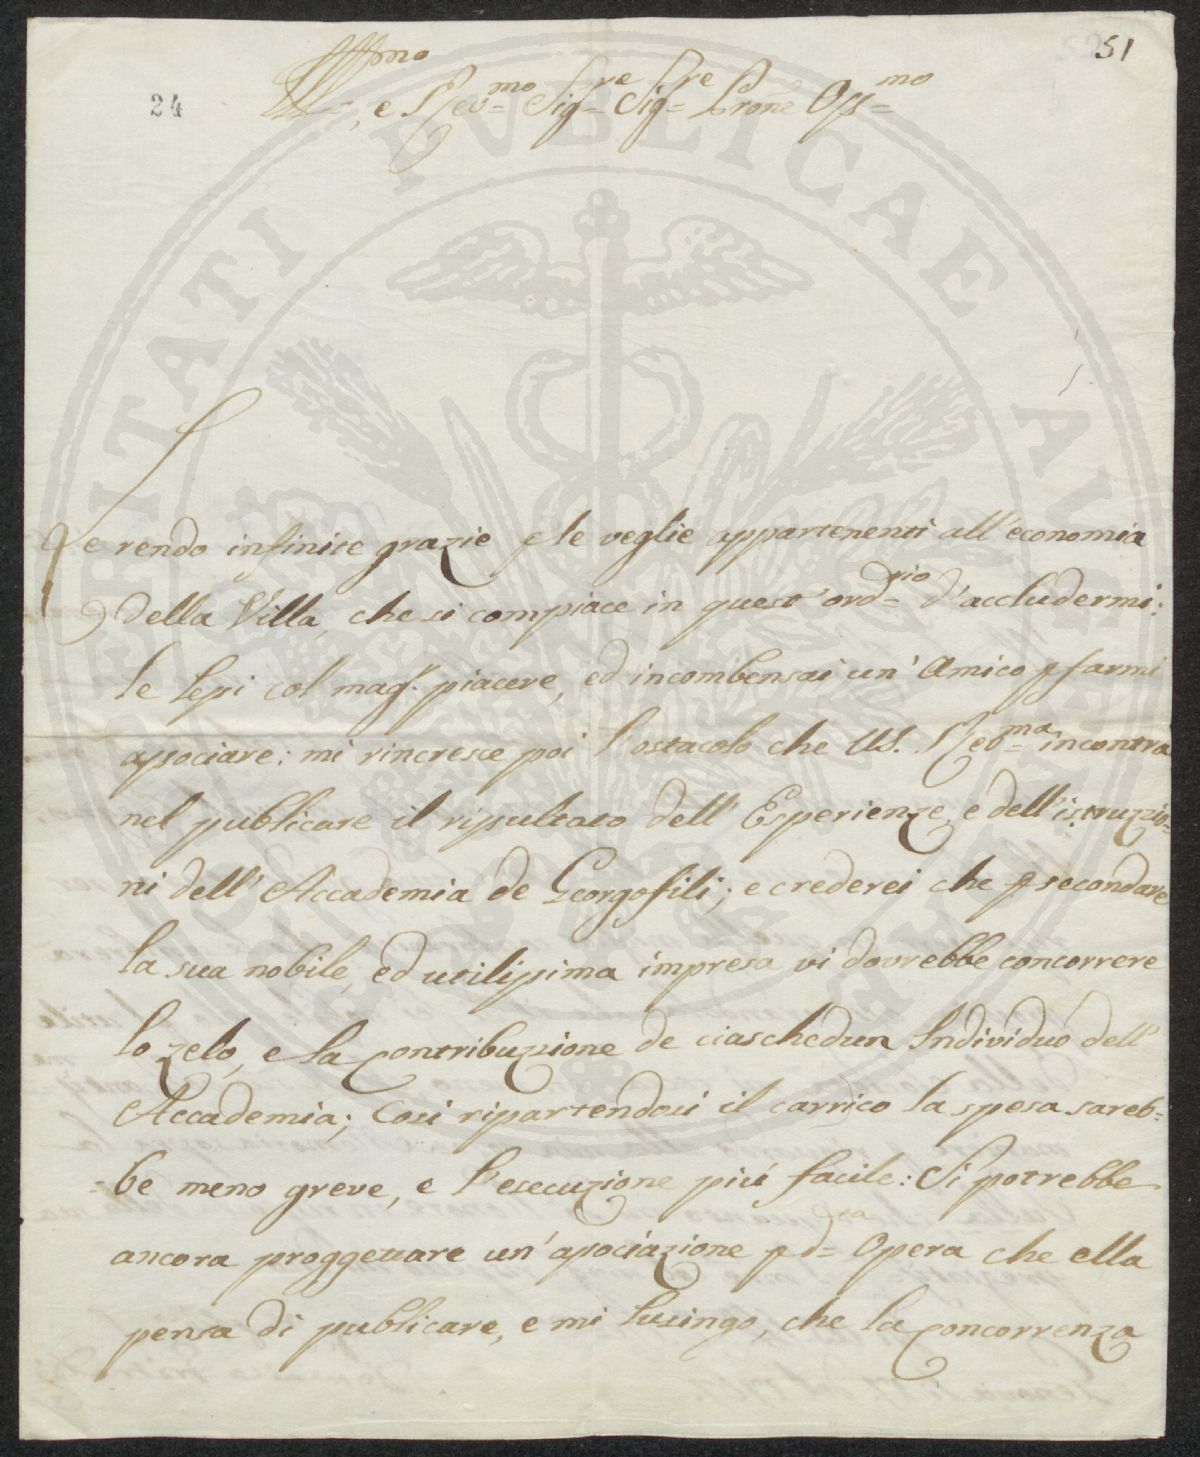 51
24
Ill.mo, e Rev.mo Sig.re Sig.re Prone Oss.mo
Le rendo infinite grazie p le veglie appartenenti all'economia
della Villa, che si compiace in quest'ord.rio d'accludermi:
le lessi col mag.r piacere, ed incombensai un'Amico p farmi
associare: mi rincresce poi l'ostacolo che US. Rev.ma incontra
nel publicare il risultato dell'Esperienze, e dell'istruzzio=
ni dell'Accademia de Georgofili; e crederei che p secondare
la sua nobile, ed utilissima impresa vi dovrebbe concorrere
lo zelo, e la contribuzione de ciaschedun Individuo dell'
Accademia; Cosi ripartendosi il carrico la spesa sareb=
=be meno greve, e l'esecuzione piú facile: Si potrebbe
ancora proggettare un'associazione p d.ta Opera che ella
pensa di publicare, e mi lusingo, che la concorrenza
PUBLICAE